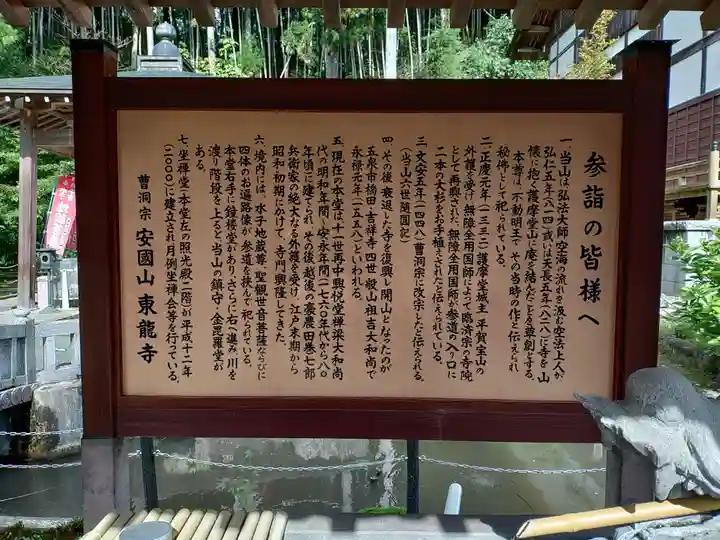 参詣の皆様へ
一、当山は弘法大師空海の流れを汲む空法上人が、
弘仁五年(八一四)或いは天長五年(八二八)に寺を山
懐に抱く護摩堂山に庵を結んだことを草創とする。
本尊は、不動明王で、その当時の作と伝えられ、
秘佛として祀られている。
二、正慶元年(一三三二)護摩堂城主、平賀宝山の
外護を受け、無障全用国師によって臨済宗の寺院
として再興された。無障全用国師が参道の入り口に
二本の大杉をお手植えされたと伝えられている。
三、文安五年(一四四八)曹洞宗に改宗したと伝えられる。
(当山六世隣国記)
四、その後、衰退した寺を復興し開山となったのが
五泉市橋田・吉祥寺四世、殺山祖吉大和尚で
永禄元年(一五五八)といわれる。
五、現在の本堂は十一世再中興悦堂禅梁大和尚
代の明和年間、安永年間(一七六〇年代から八〇
年頃)に建てられ、その後、越後の豪農田巻七郎
兵衛家の絶大なる外護を受け、江戸末期から
昭和初期にかけて、寺門興隆してきた。
六、境内には、水子地蔵尊、聖観世音菩薩ならびに
四体のお遍路像が、参道を挟んで祀られている。
本堂右手に鐘楼堂があり、さらに右へ進み、川を
渡り階段を上ると、当山の鎮守、金毘羅堂が
ある。
七、坐禅堂(本堂左の照光殿二階)が平成十二年
(二〇〇〇)に建立され月例坐禅会等を行っている。
曹洞宗 安國山東龍寺